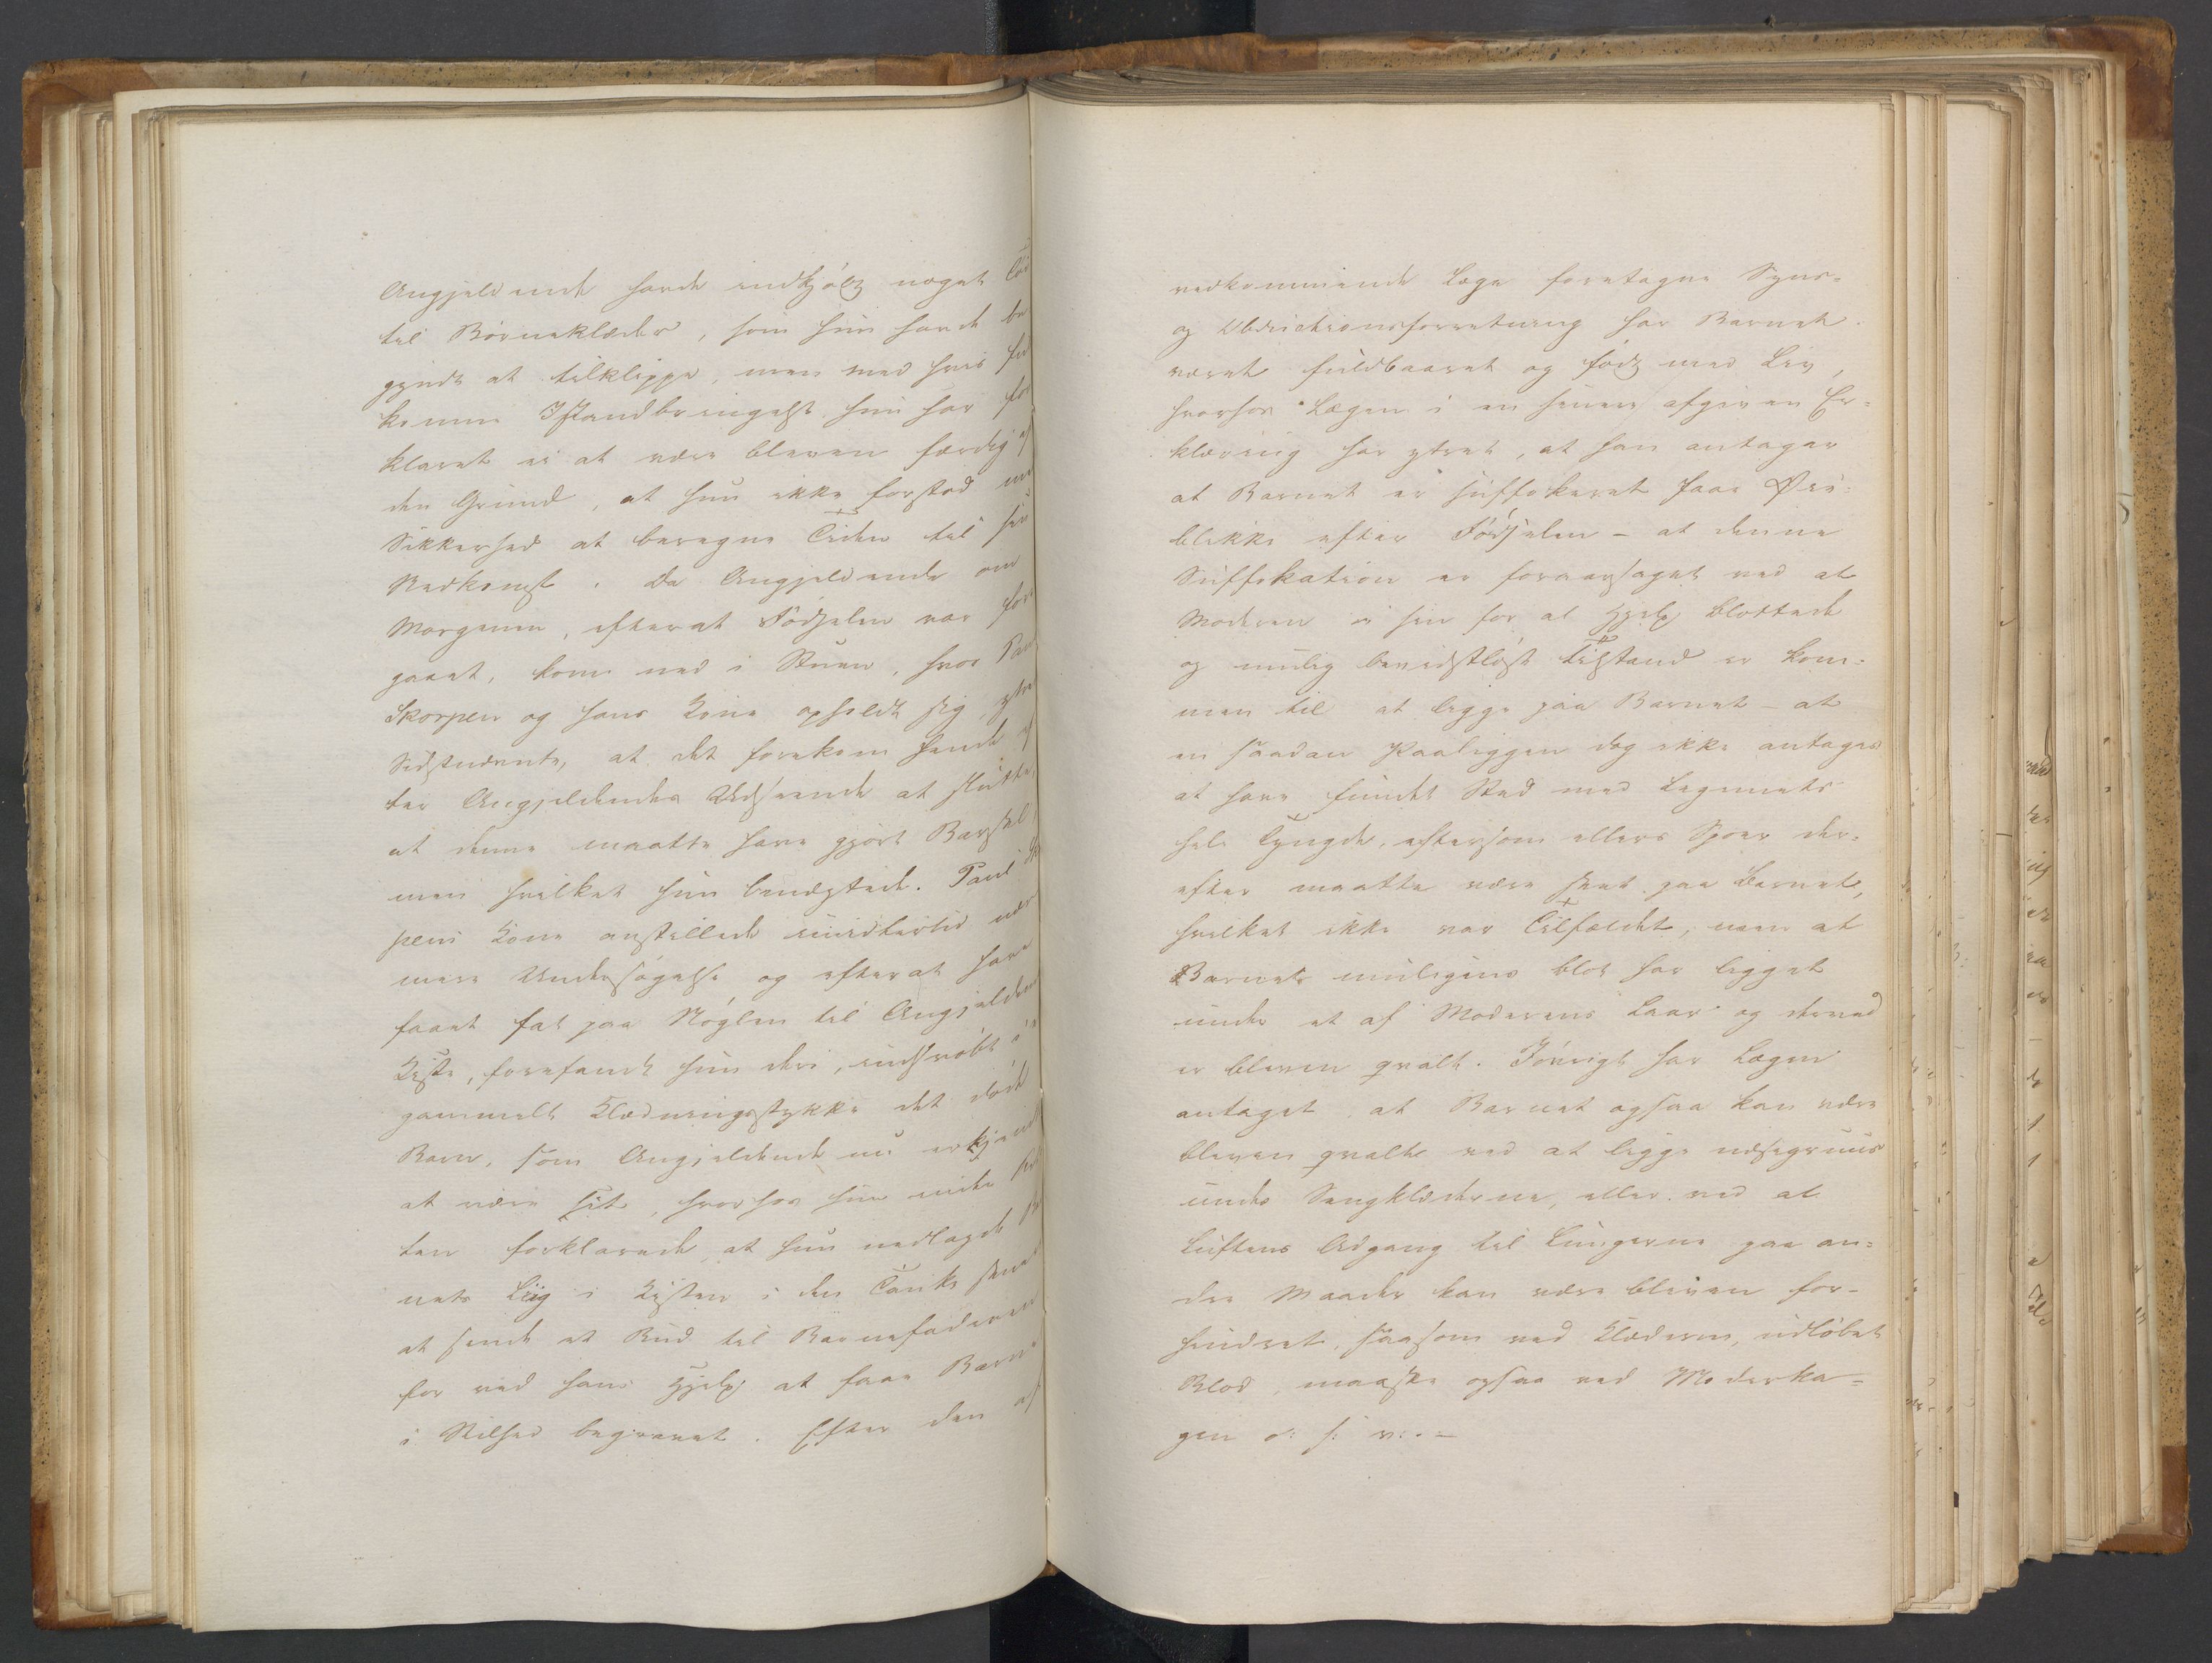 Angjeldende havde indkjøbt noget Tøi
til Børneklæder, som hun havde be
gyndt at tilklippe, men med hvis fuld
komne Istandbringelse hun har for
klaret ei at være bleven færdig af
den Grund, at hun ikke forstod med
Sikkerhed at beregne Tiden til sin
Nedkomst. Da Angjeldende om
Morgenen, efterat Fødselen var fore
gaaet, kom ned i Stuen, hvor Paul
Skorpen og hans Kone opholdt sig, ytre
Sidstnævnte, at det forekom hende ef
ter Angjeldendes Udseende at slutte,
at denne maatte have gjort Barsel,
men hvilket hun benægtede. Paul Skor
pens Kone anstillede imidlertid nær
mere Undersøgelse og efterat have
faaet fat paa Nøglen til Angjeldendes
Kiste, forefandt hun deri, indsvøbt i
gammelt Klædningsstykke det døde
Barn, som Angjeldende nu erkjendte
at være sit, hvorhos hun under
ten forklarede, at hun nedlagde Bar
nets Liig i Kisten i den Tanke senere
at sende et Bud til Barnefaderen
for ved hans Hjelp at faae Barnet
i Stilhed begravet. Efter den af
vedkommende Læge foretagne Syns-
og Obductionsforretning har Barnet
været fuldbaaret og født med Liv,
hvorhos Lægen i en senere afgiven Er-
klæring har ytret, at han antager
at Barnet er suffokeret faae Øie-
blikke efter Fødselen - at denne
Suffokation er foraarsaget ved at
Moderen i sin for al Hjelp blottede
og mulig bevidstløse Tilstand er kom-
men til at ligge paa Barnet - at
en saadan Paaliggen dog ikke antages
at have fundet Sted med Legemets
hele Tyngde, eftersom ellers Spoer der-
efter maatte være seet paa Barnet,
hvilket ikke var Tilfældet, men at
Barnet muligens blot har ligget
under et af Moderens Laar og derved
er bleven qvalt. Iøvrigt har Lægen
antaget at Barnet ogsaa kan være
bleven qvalt ved at ligge næsegruus
under Sengklæderne, eller ved at
Luftens Adgang til Lungerne paa an-
dre Maader kan være bleven for-
hindret, saasom ved Klæderne, udløbet
Blod, maaske ogsaa ved Moderka-
gen o: s: v: . -